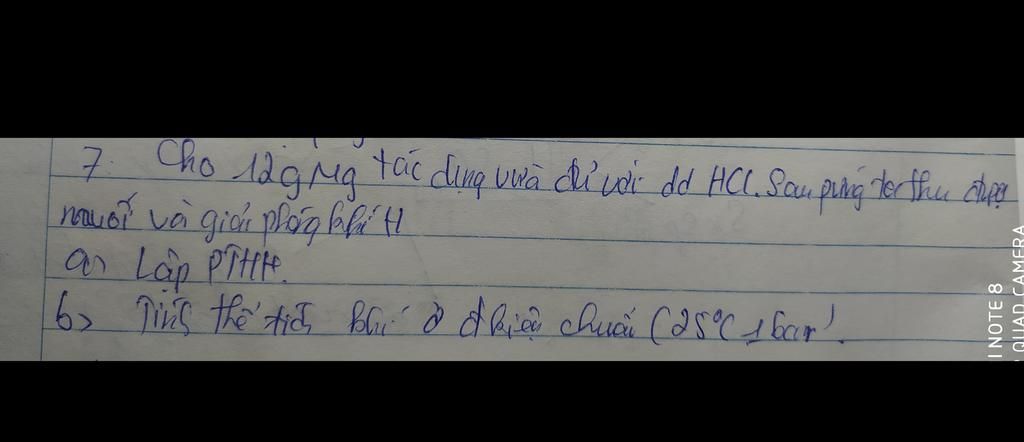 7. Cho 12g Mg tác dụng vừa đủ với dd HCl. Sau pứng ta thu được
muối và giải phóng khí H
a) Lập PTHH.
b) Tính thể tích khí ở đkiện chuẩn (25°C 1 bar)
I NOTE 8
QUAD CAMERA